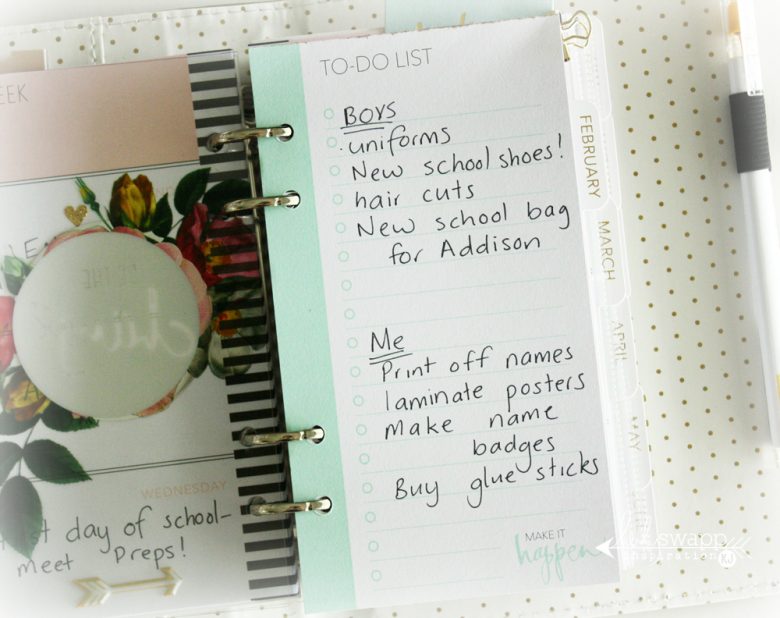 EEK
WEDNESDAY
day of school-
meet Preps!
TO-DO LIST
BOYS
uniforms
New school shoes!
hair cuts
New school bag
for Addison
Me
Print off names
laminate posters
make name
badges
Buy glue sticks
MAKE IT
happen
FEBRUARY
MARCH
APRIL
MAY
swapp